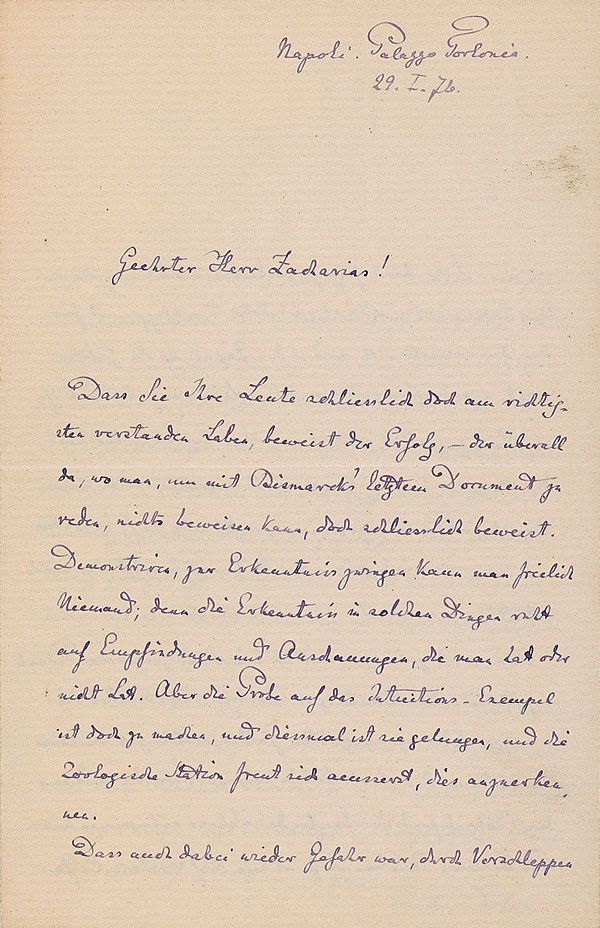 Napoli. Palazzo Torlonia.
29. I. 76.
Geehrter Herr Zacharias!
Dass Sie Ihre Leute schliesslich doch am richtig-
sten verstanden haben, beweist der Erfolg, – der überall
da, wo man, um mit Bismarck's letztem Document zu
reden, nichts beweisen kann, doch schliesslich beweist.
Demonstriren, zur Erkenntniss zwingen kann man freilich
Niemand; denn die Erkenntniss in solchen Dingen ruht
auf Empfindungen und Anschauungen, die man hat oder
nicht hat. Aber die Probe auf das Intuitions-Exempel
ist doch zu machen, und diessmal ist sie gelungen, und die
Zoologische Station freut sich aeusserst, dies anzuerken,
nen.
Dass auch dabei wieder Gefahr war, durch Verschleppen